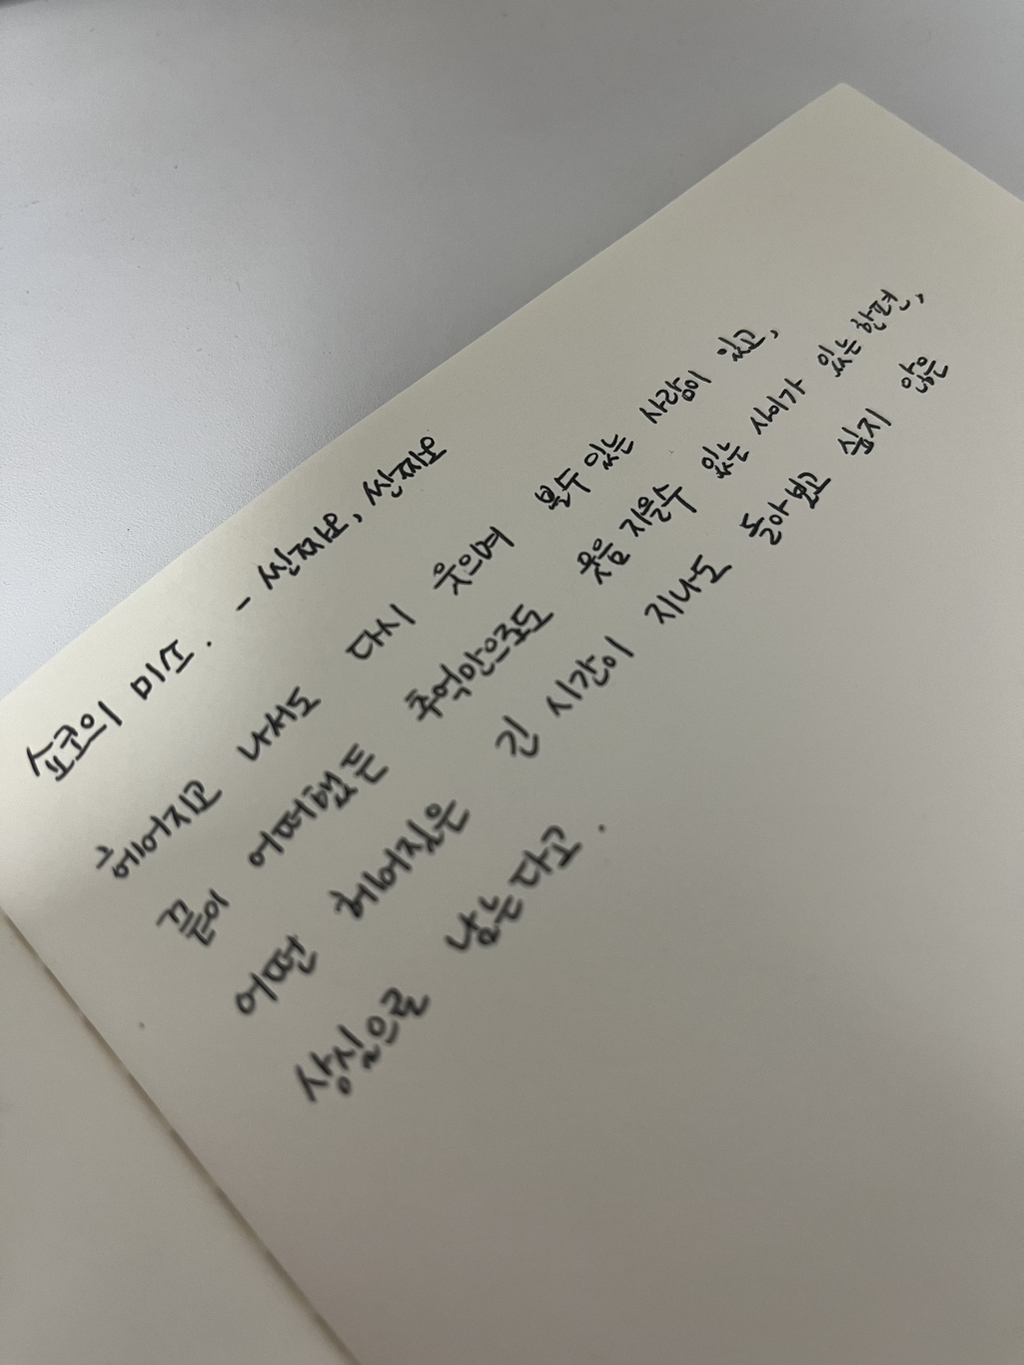 쇼코의 미소. - 씬짜오, 씬짜오
헤어지고 나서도 다시 웃으며 볼수 있는 사람이 있고,
끝이 어떠했든 추억만으로도 웃음 지을수 있는 사이가 있는 한편,
어떤 헤어짐은 긴 시간이 지나도 돌아보고 싶지 않은
상실으로 남는다고.